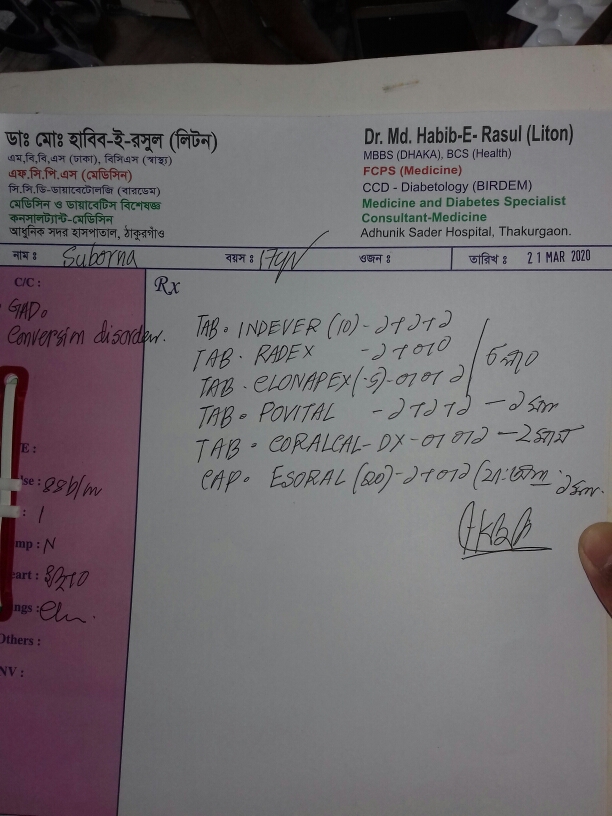 ডাঃ মোঃ হাবিব-ই-রসুল (লিটন)
এম,বি,বি,এস (ঢাকা), বিসিএস (স্বাস্থ্য)
এফ.সি.পি.এস (মেডিসিন)
সি.সি.ডি-ডায়াবেটোলজি (বারডেম)
মেডিসিন ও ডায়াবেটিস বিশেষজ্ঞ
কনসালট্যান্ট-মেডিসিন
আধুনিক সদর হাসপাতাল, ঠাকুরগাঁও
Dr. Md. Habib-E- Rasul (Liton)
MBBS (DHAKA), BCS (Health)
FCPS (Medicine)
CCD - Diabetology (BIRDEM)
Medicine and Diabetes Specialist
Consultant-Medicine
Adhunik Sader Hospital, Thakurgaon.
নাম : Suborna বয়স : 17yr ওজন : তারিখ : 21 MAR 2020
C/C :
GAD.
Conversion disorder.
E :
lse : 88b/m
: /
mp : N
eart :
ngs :
Others :
NV :
Rx
TAB. INDEVER (10) - ১+১+১
TAB. RADEX - ১+০+০
TAB. CLONAPEX (.5) - ০+০+১
চলবে
TAB. POVITAL - ১+১+১ - ১ মাস
TAB. CORALCAL-DX - ০+০+১ - ২ মাস
CAP. ESORAL (20) - ১+০+১ ১ মাস.